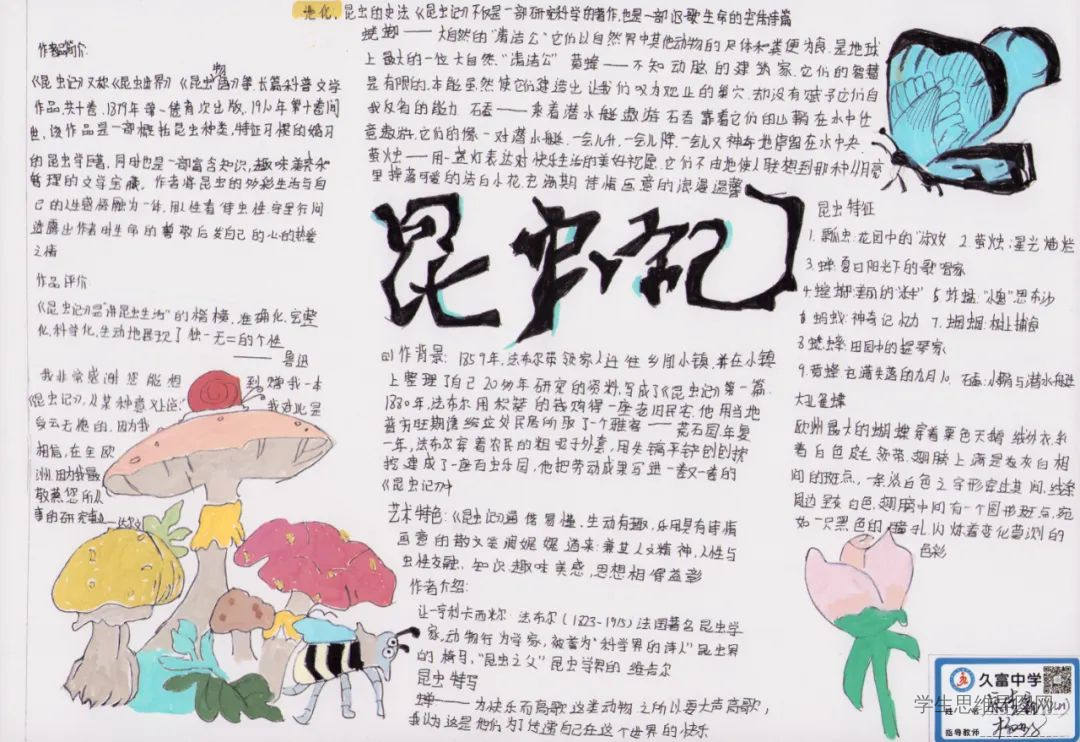 昆虫的史诗《昆虫记》不仅是一部研究科学的著作,也是一部讴歌生命的宏伟诗篇
蜣螂——大自然的"清洁公"它们以自然界中其他动物的尸体和粪便为食,是地球
上最大的一位大自然"清洁公"黄蜂——不知动脑的建筑家,它们的智慧
是有限的,本能虽然使它们建造出让我们叹为观止的巢穴,却没有赋予它们自
我反省的能力 石蚕——来着潜水艇遨游石蚕靠着它们的小鞘在水中任
意遨游,它们的像一对潜水艇,一会儿升,一会儿降,一会儿又神奇地停留在水中央
萤烛——用一盏灯表达对快乐生活的美好祝愿,它们不由地使人联想到那种4月亮
里掉落可爱的洁白小花,充满期 诗情画意的浪漫温馨
作品简介:
《昆虫记》又称《昆虫世界》《昆虫物》等长篇科普文学
作品,共十卷,1879年第一卷首次出版,1910年第十卷问
世,该作品是一部概括昆虫种类,特征习
的昆虫学巨著,同时也是一部富含知识,趣味美
哲理的文学宝藏,作者将昆虫的多彩生活与自
己的人生感悟融为一体,用人性看待虫性,字里行间
透露出作者对生命的尊敬
之情
作品评价
《昆虫记》是"讲昆虫生活"的楷模,准确化,完整
化,科学化,生动地展现了独一无二的个性
——鲁迅
我非常感谢您能想 到赠我一本
《昆虫记》,从某种意义上说: 我对此是
良心无愧的,因为我
相信,在全欧
洲,因为我最
敬慕您所从
事的研究
昆虫记
创作背景:1859年,法布尔带领家人迁往乡间小镇,并在小镇
上整理了自己20多年研究的资料,写成了《昆虫记》第一篇.
1880年,法布尔用积蓄的钱购得一座老旧民宅,他用当地
普 旺期 处民居所取了个雅号——荒石园,年复
一年,法布尔穿着农民的粗呢子外套,用尖镐平铲刨刨挖
挖,建成了一座百虫乐园,他把劳动成果写进一卷又一卷的
《昆虫记》中
艺术特色:《昆虫记》通俗易懂,生动有趣,
画意的散文 娓娓道来:兼其人文精神,人性与
虫性交融,知识,趣味美感,思想相得益彰
作者介绍:
让-亨利卡西米尔·法布尔(1823-1915)法国著名昆虫学
家,动物行为学家,被誉为"科学界的诗人"昆虫界
的 "昆虫之父"昆虫学界的 维吉尔
昆虫特写
蝉——为快乐而高歌,这类动物之所以要大声高歌,
我认为这是他们为了传递自己在这个世界的快乐
昆虫特征
1.瓢虫:花园中的"淑女 2.萤烛:星光灿烂
3.蝉:夏日阳光下的歌唱家
4.螳螂:美丽的"杀手" 5.蚱蜢
6.蚂蚁:神奇记忆力 7.蝈蝈:树上捕食
8.蟋蟀:田园中的提琴家
9.黄蜂:它 失落的 10.石蚕:小鞘与潜水艇
大孔雀蝶
欧洲最大的蝴蝶穿着栗色天鹅绒外衣,系
着白色皮毛领带,翅膀上满是灰白相
间的斑点,一条淡白色之字形穿过其间,线条
周边呈灰白色,翅膀中间有一个圆形斑点,宛
如一只黑色的瞳孔,闪烁着变化莫测的
色彩
久富中学
学生思维导图网
指导教师